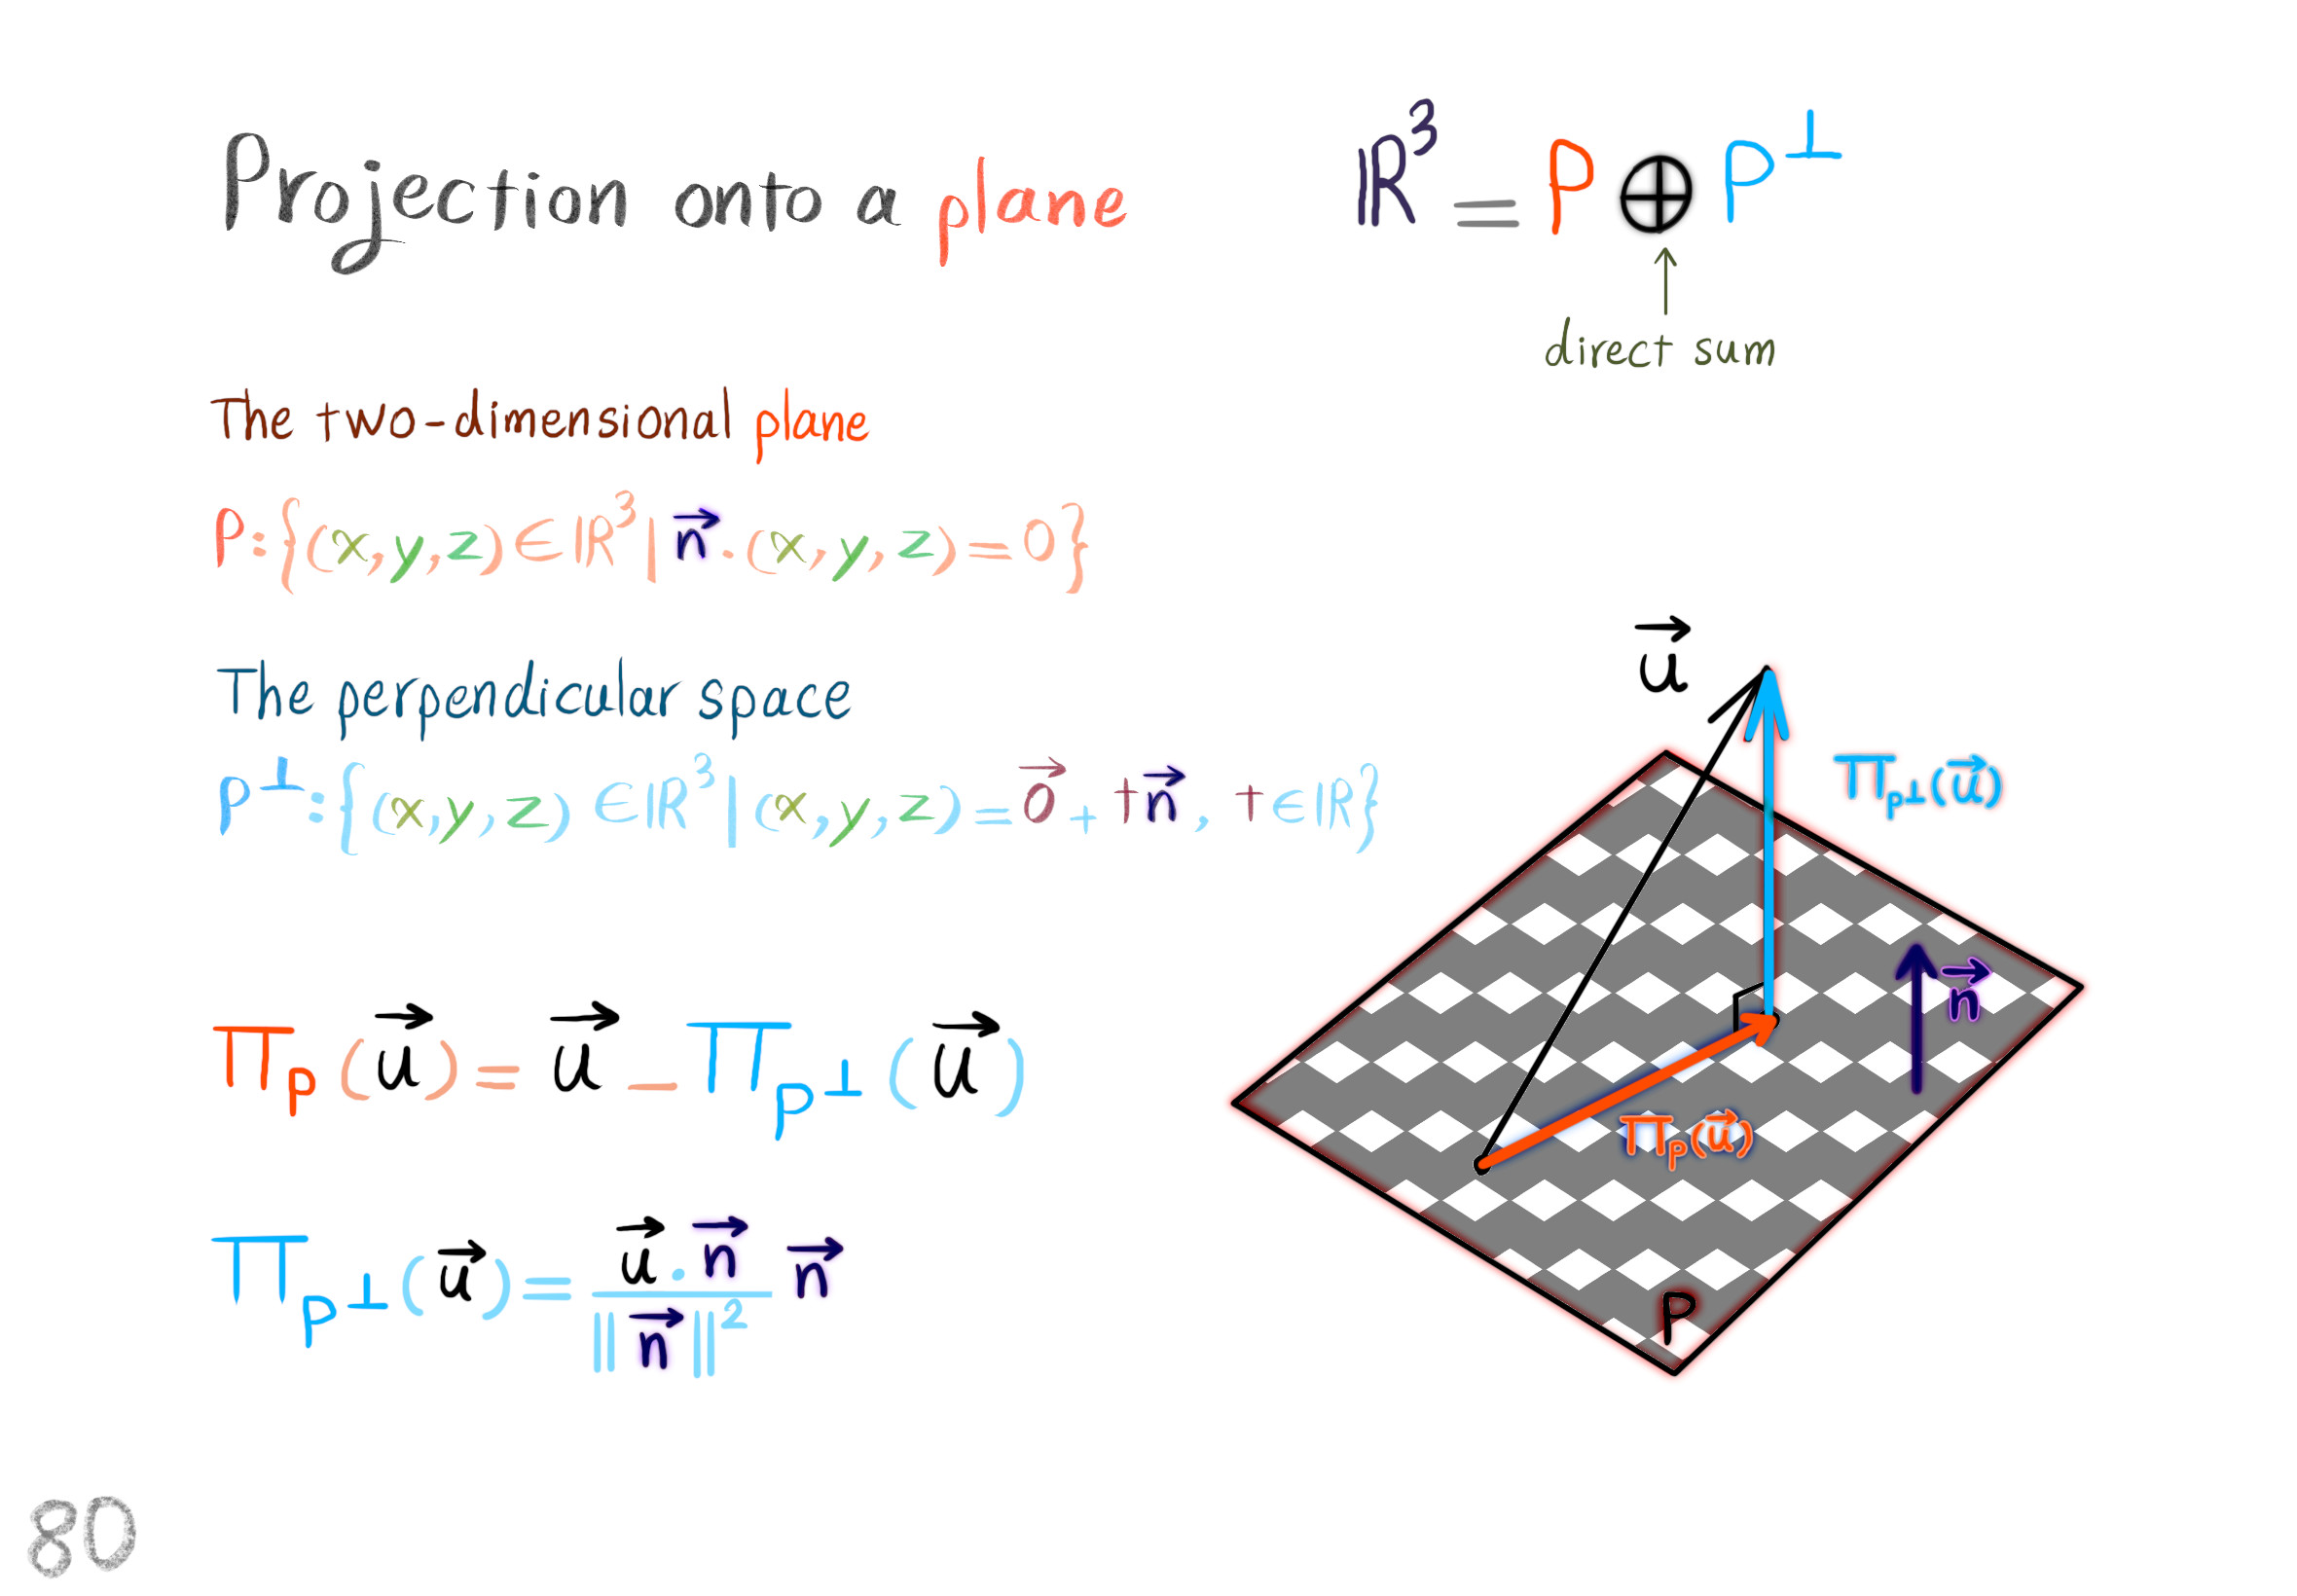 Projection onto a plane
ℝ³ = P ⊕ P⊥
direct sum
The two-dimensional plane
P:{(x,y,z)∈ℝ³| n⃗·(x,y,z)=0}
The perpendicular space
P⊥:{(x,y,z)∈ℝ³|(x,y,z)=0⃗+tn⃗, t∈ℝ}
Πp(u⃗)=u⃗-Πp⊥(u⃗)
Πp⊥(u⃗)=u⃗·n⃗/‖n⃗‖² n⃗
u⃗
Πp⊥(u⃗)
n⃗
Πp(u⃗)
P
80